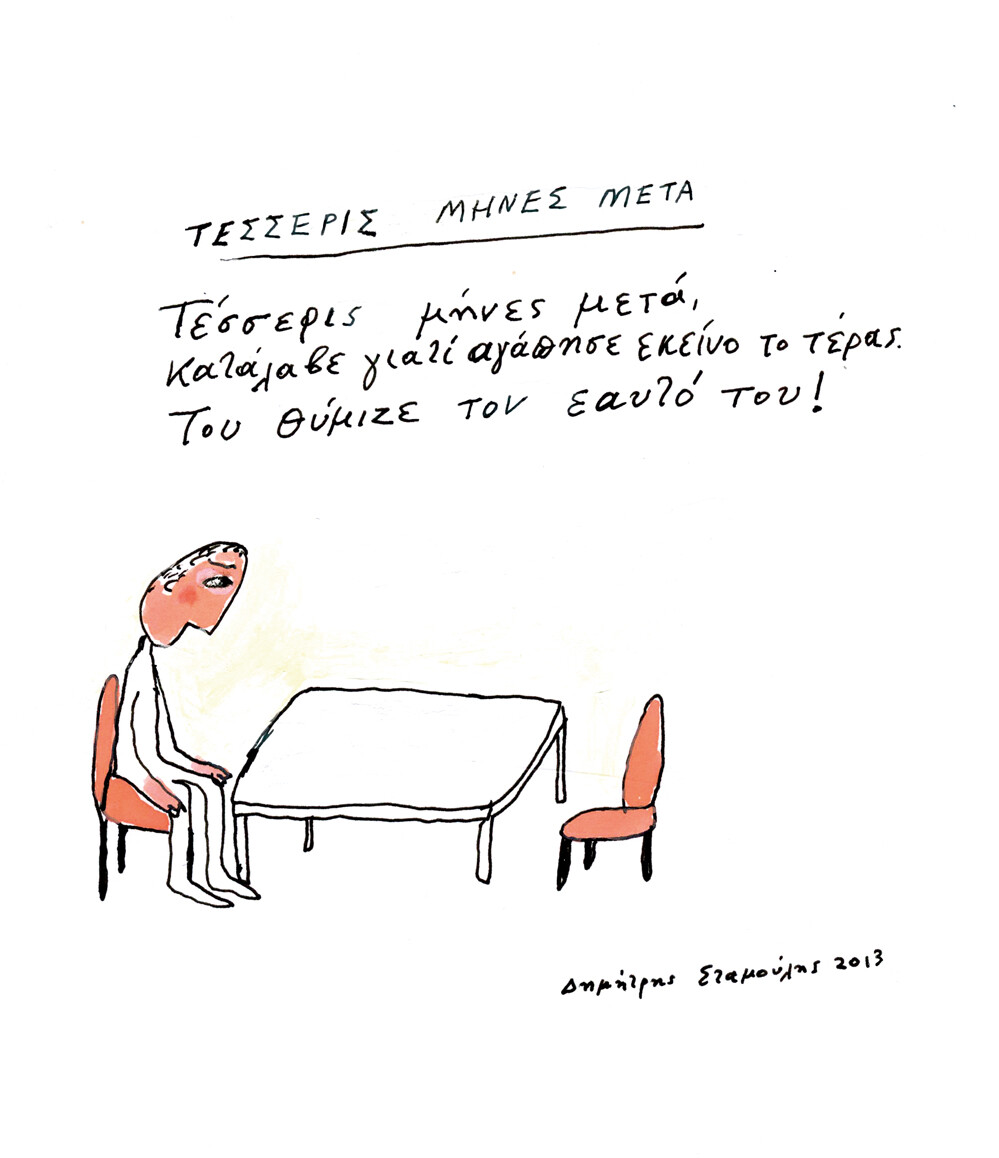 ΤΕΣΣΕΡΙΣ ΜΗΝΕΣ ΜΕΤΑ
Τέσσερις μήνες μετά,
κατάλαβε γιατί αγάπησε εκείνο το τέρας.
Του θύμιζε τον εαυτό του!
Δημήτρης Σταμούλης 2013